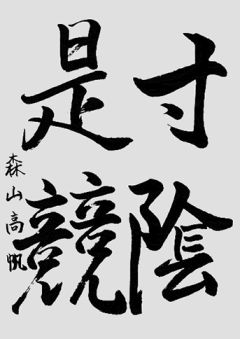 寸陰
是競
森山高帆